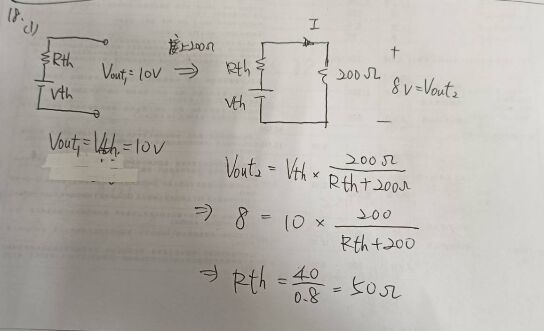 18.(1)
Rth
Vth
Vout₁=10V
接上200Ω
⇒
I
Rth
Vth
200Ω
+
8V=Vout₂
−
Vout₁=Vth=10V
Vout₂ = Vth × 200Ω / (Rth+200Ω)
⇒ 8 = 10 × 200 / (Rth+200)
⇒ Rth = 40/0.8 = 50Ω